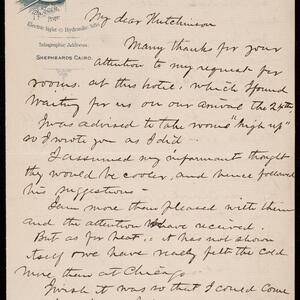 Propr
Electric light & Hydraulic lifts
Telegraphic Address:
SHEPHEARDS CAIRO.
My dear Hutchinson
Many thanks for your
attention to my request for
rooms. at this hotel: which I found
waiting for us on our arrival the 24th
I was advised to take rooms "high up"
so I wrote you as I did -
I assumed my informant thought
they would be cooler, and hence followed
his suggestions -
I am more than pleased with them
and the attention I have received.
But as for heat, it has not shown
itself and we have really felt the cold
more than at Chicago
I wish it was so that I could come